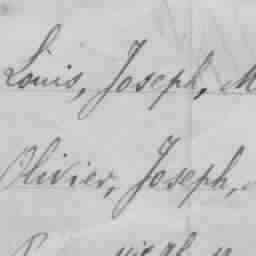 Louis, Joseph, M
Olivier, Joseph,